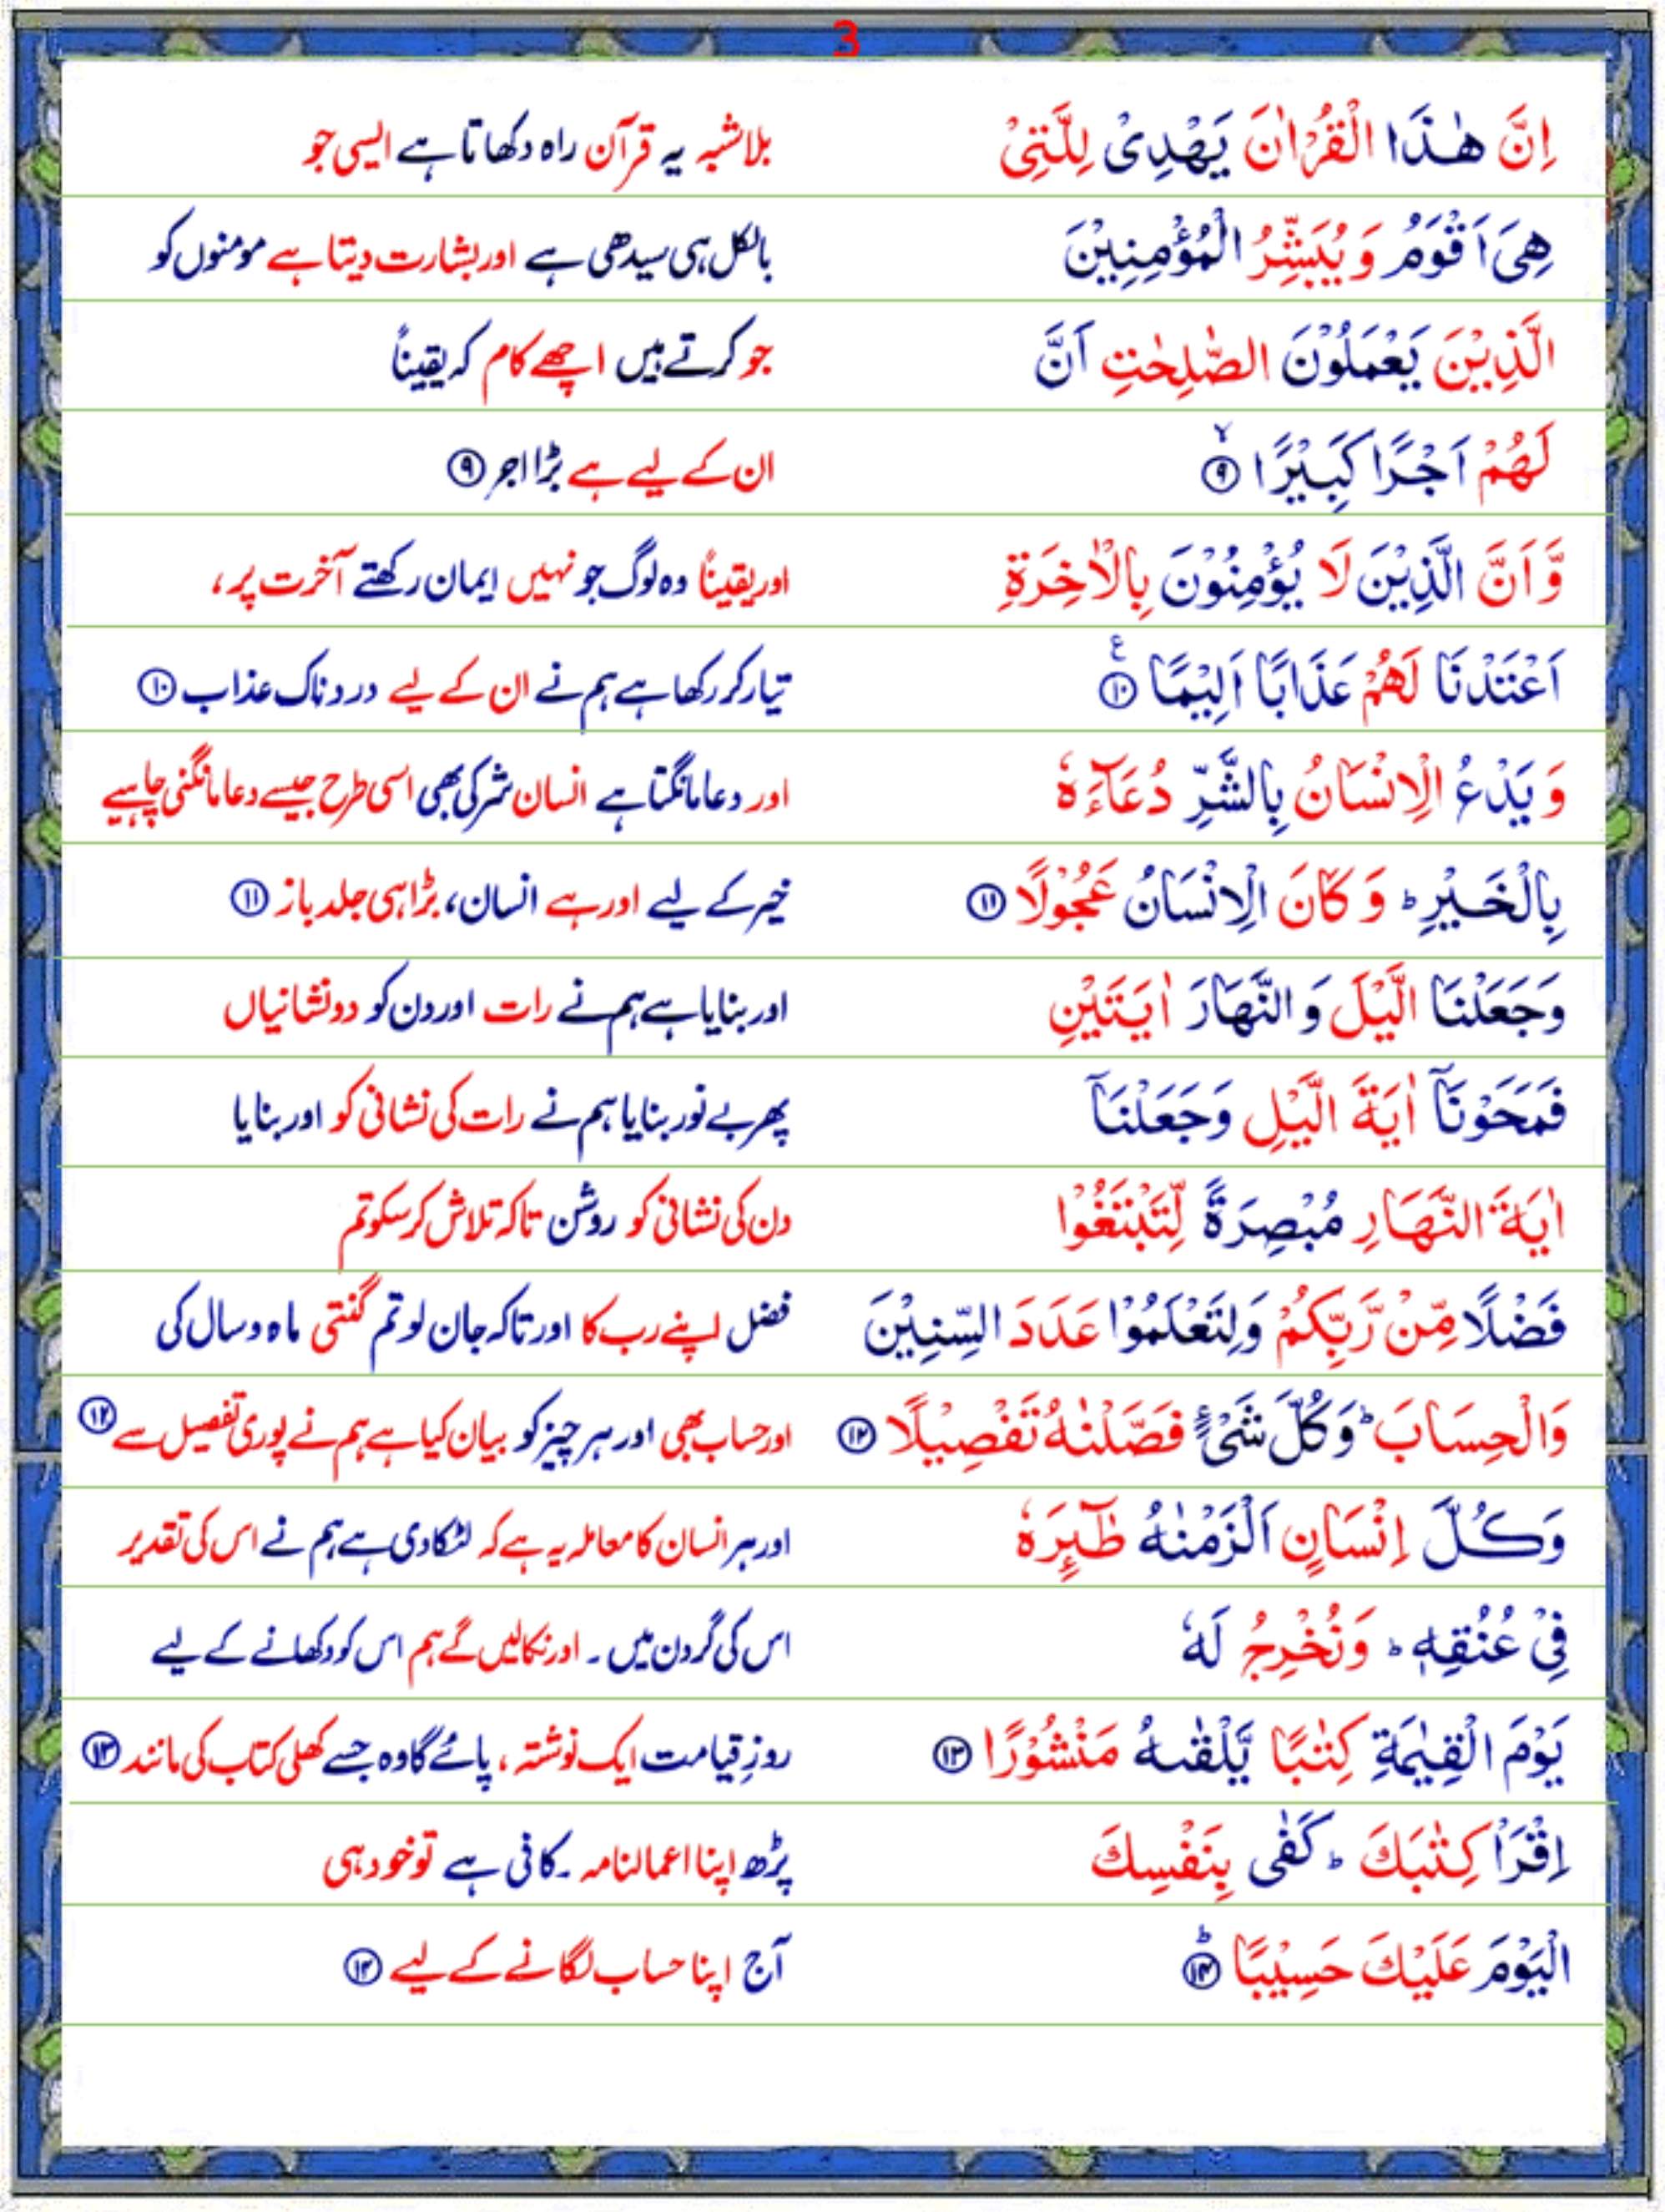 3
اِنَّ هٰذَا الْقُرْاٰنَ يَهْدِىْ لِلَّتِىْ بلاشبہ یہ قرآن راہ دکھاتا ہے ایسی جو
هِىَ اَقْوَمُ وَ يُبَشِّرُ الْمُؤْمِنِيْنَ بالکل ہی سیدھی ہے اور بشارت دیتا ہے مومنوں کو
الَّذِيْنَ يَعْمَلُوْنَ الصّٰلِحٰتِ اَنَّ جو کرتے ہیں اچھے کام کہ یقیناً
لَهُمْ اَجْرًا كَبِيْرًا ۙ ۹ ان کے لیے ہے بڑا اجر ۹
وَّ اَنَّ الَّذِيْنَ لَا يُؤْمِنُوْنَ بِالْاٰخِرَةِ اور یقیناً وہ لوگ جو نہیں ایمان رکھتے آخرت پر،
اَعْتَدْنَا لَهُمْ عَذَابًا اَلِيْمًا ۧ ۱۰ تیار کر رکھا ہے ہم نے ان کے لیے دردناک عذاب ۱۰
وَ يَدْعُ الْاِنْسَانُ بِالشَّرِّ دُعَآءَهٗ اور دعا مانگتا ہے انسان شر کی بھی اسی طرح جیسے دعا مانگنی چاہیے
بِالْخَيْرِ ؕ وَ كَانَ الْاِنْسَانُ عَجُوْلًا ۱۱ خیر کے لیے اور ہے انسان، بڑا ہی جلد باز ۱۱
وَجَعَلْنَا الَّيْلَ وَ النَّهَارَ اٰيَتَيْنِ اور بنایا ہے ہم نے رات اور دن کو دو نشانیاں
فَمَحَوْنَآ اٰيَةَ الَّيْلِ وَجَعَلْنَآ پھر بے نور بنایا ہم نے رات کی نشانی کو اور بنایا
اٰيَةَ النَّهَارِ مُبْصِرَةً لِّتَبْتَغُوْا دن کی نشانی کو روشن تاکہ تلاش کر سکو تم
فَضْلًا مِّنْ رَّبِّكُمْ وَلِتَعْلَمُوْا عَدَدَ السِّنِيْنَ فضل اپنے رب کا اور تاکہ جان لو تم گنتی ماہ و سال کی
وَالْحِسَابَ ؕ وَ كُلَّ شَىْءٍ فَصَّلْنٰهُ تَفْصِيْلًا ۱۲ اور حساب بھی اور ہر چیز کو بیان کیا ہے ہم نے پوری تفصیل سے ۱۲
وَ كُلَّ اِنْسَانٍ اَلْزَمْنٰهُ طٰٓئِرَهٗ اور ہر انسان کا معاملہ یہ ہے کہ لٹکا دی ہے ہم نے اس کی تقدیر
فِىْ عُنُقِهٖ ؕ وَنُخْرِجُ لَهٗ اس کی گردن میں ۔ اور نکالیں گے ہم اس کو دکھانے کے لیے
يَوْمَ الْقِيٰمَةِ كِتٰبًا يَّلْقٰىهُ مَنْشُوْرًا ۱۳ روزِ قیامت ایک نوشتہ، پائے گا وہ جسے کھلی کتاب کی مانند ۱۳
اِقْرَاْ كِتٰبَكَ ؕ كَفٰى بِنَفْسِكَ پڑھ اپنا اعمالنامہ ۔ کافی ہے تو خود ہی
الْيَوْمَ عَلَيْكَ حَسِيْبًا ؕ ۱۴ آج اپنا حساب لگانے کے لیے ۱۴